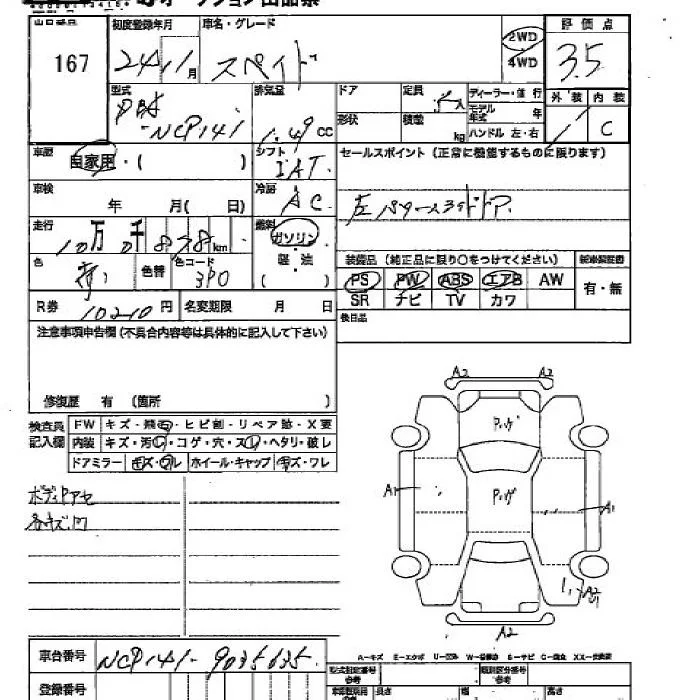 出品番号 初度登録年月 車名・グレード 評価点
167 24年11月 スペイド 2WD 4WD 3.5
型式 排気量 ドア 定員 ディーラー・並行 外装 内装
DBA-NCP141 1.49 CC 形状 積載 kg モデル年式 年 C
ハンドル 左・右
車歴 自家用・( ) シフト IAT セールスポイント (正常に機能するものに限ります)
車検 年 月( 日) 冷房 AC
左パワースライドドア.
走行 10万0千838km 燃料 ガソリン・軽油 ( )
装備品 (純正品に限り○をつけてください) 新車保証書
色 色替 色コード 3P0 PS PW ABS エアB AW 有・無
SR ナビ TV カワ
R券 10210円 名変期限 月 日 後日品
注意事項申告欄 (不具合内容等は具体的に記入して下さい)
修復歴 有 (箇所 )
検査員記入欄 FW キズ・飛石・ヒビ割・リペア跡・X要
内装 キズ・汚レ・コゲ・穴・スレ・ヘタリ・破レ
ドアミラー キズ・ワレ ホイール・キャップ キズ・ワレ
A2 A2
P.ハゲ
ボディDアセ
各キズ凹
A1 P.ハゲ A1
A2
A2
A-キズ E-エクボ
車台番号 NCP141-9035635
型式指定番号 参考 類別区分番号 参考
登録番号 長さ 幅 高さ